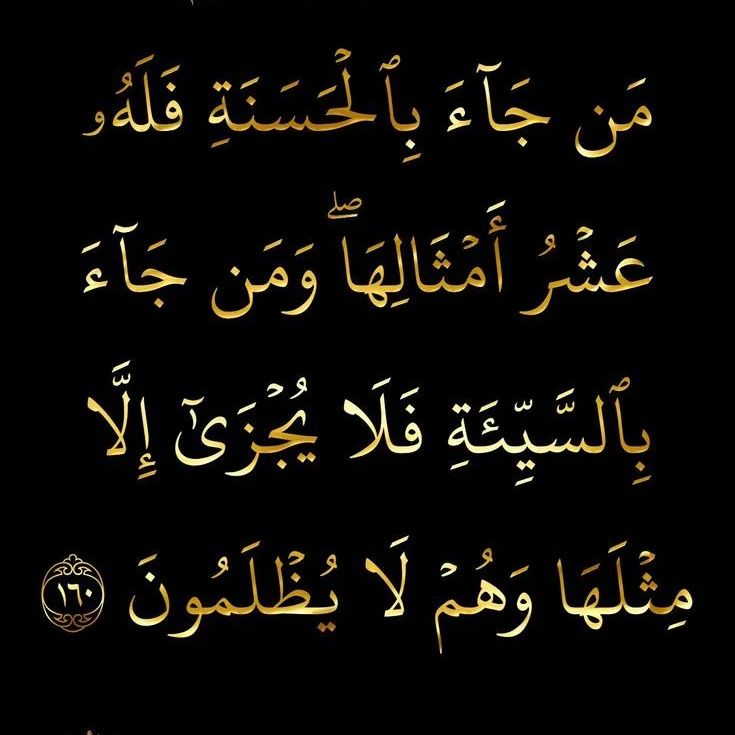 مَن جَآءَ بِٱلْحَسَنَةِ فَلَهُۥ
عَشْرُ أَمْثَالِهَا ۖ وَمَن جَآءَ
بِٱلسَّيِّئَةِ فَلَا يُجْزَىٰٓ إِلَّا
مِثْلَهَا وَهُمْ لَا يُظْلَمُونَ ١٦٠